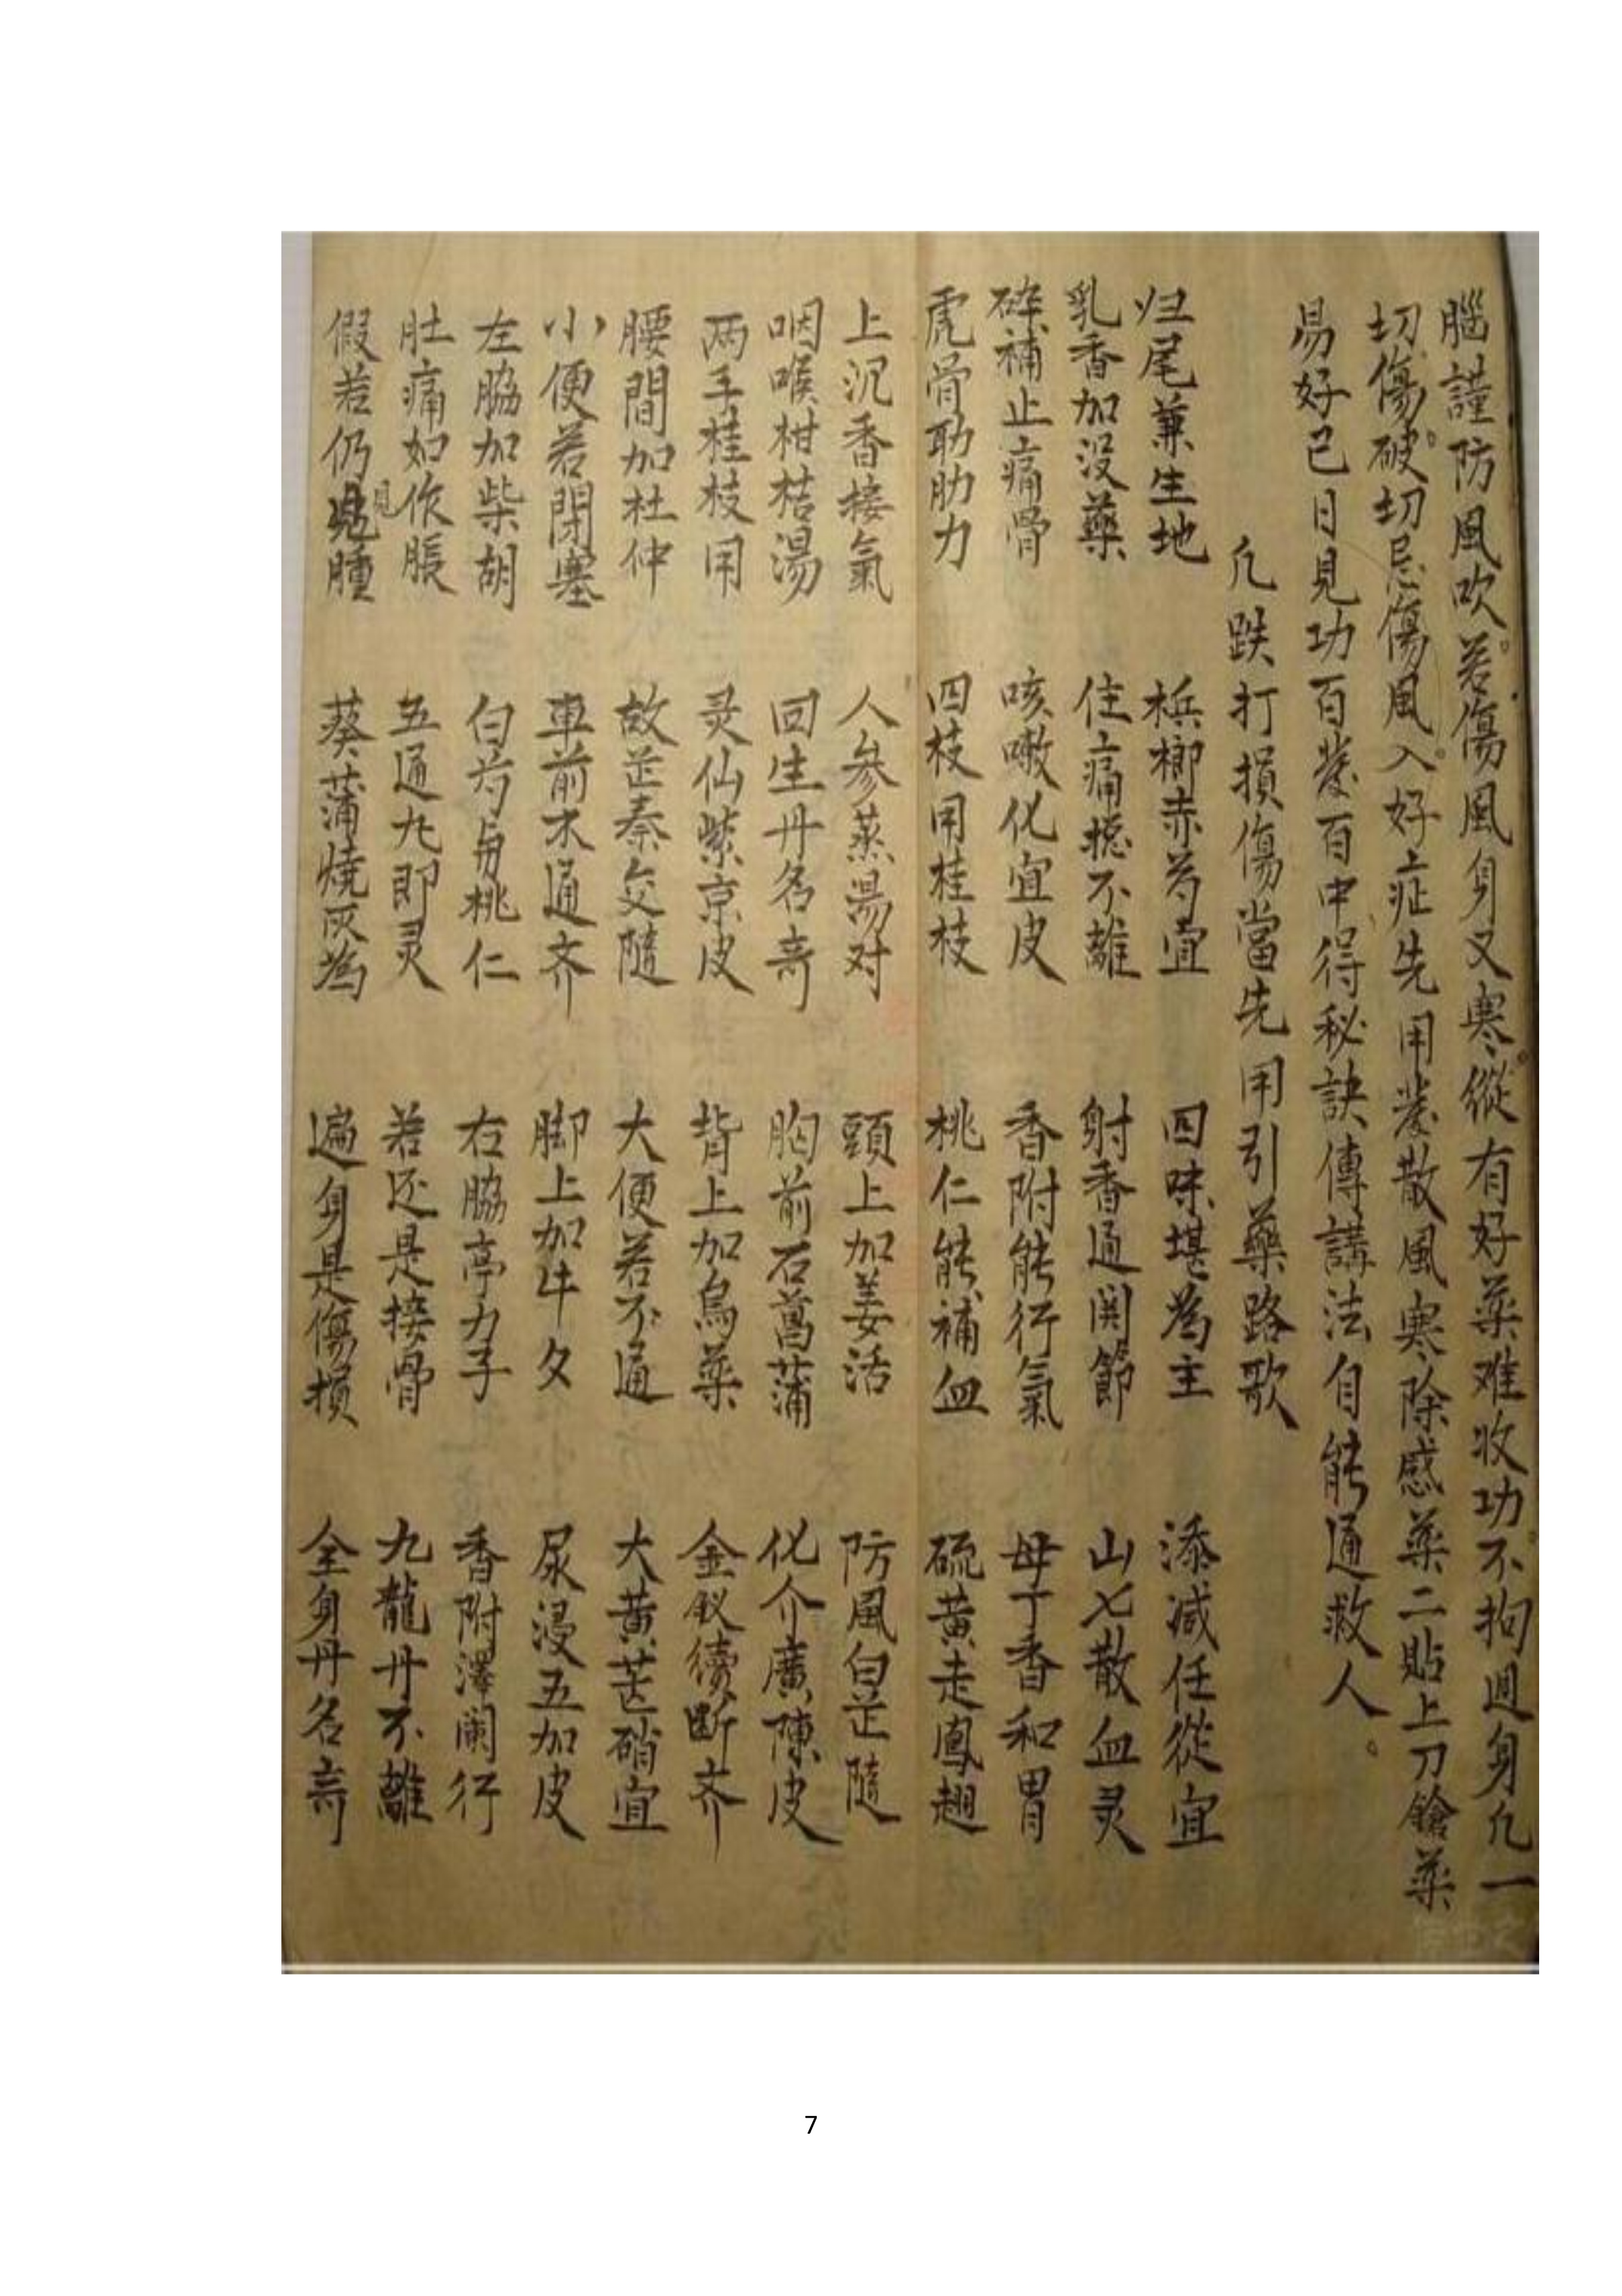 腦謹防風吹若傷風身又寒縱有好藥难收功不拘週身凢一
切傷破切忌傷風入好症先用發散風寒除感藥二貼上刀鎗藥
易好已日見功百發百中得秘訣傳講法自能通救人
凢跌打損傷當先用引藥路歌
归尾兼生地 梹榔赤芍宜 四味堪為主 添減任從宜
乳香加没藥 住痛揔不離 射香通関節 山七散血灵
碎補止痛骨 咳嗽化宜皮 香附能行氣 母丁香和胃
虎骨助肋力 四枝用桂枝 桃仁能補血 硫黄走鳳翅
上沉香接氣 人參蒸湯对 頭上加姜活 防風白芷隨
咽喉柑桔湯 回生丹名竒 胸前石菖蒲 化介廣陳皮
两手桂枝用 灵仙紫京皮 背上加烏藥 金釵續斷齐
腰間加杜仲 故芷秦交隨 大便若不通 大黄芒硝宜
小便若閉塞 車前木通齐 脚上加牛夕 尿浸五加皮
左脇加柴胡 白芍与桃仁 右脇亭力子 香附澤闌行
肚痛如作脹 五通九即灵 若还是接骨 九龍丹不離
假若仍見腫 葵蒲燒灰為 遍身是傷損 全身丹名竒
7